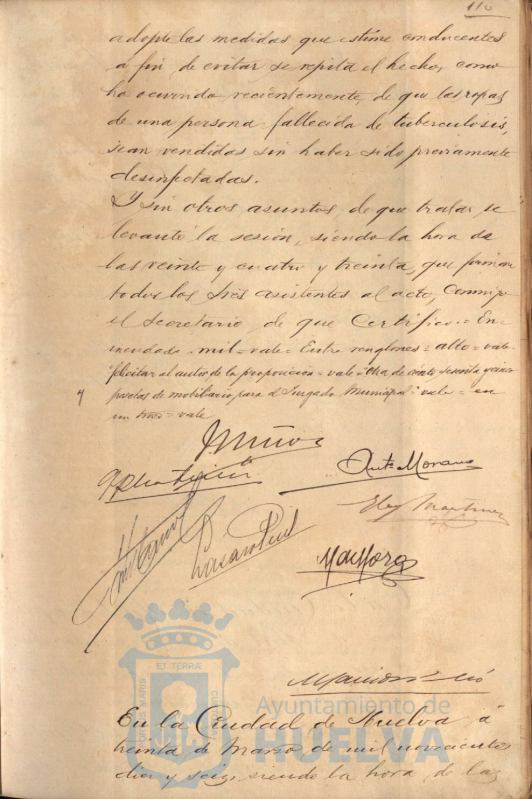 110
adopte las medidas que estime conducentes
a fin de evitar se repita el hecho, como
ha ocurrido recientemente, de que las ropas
de una persona fallecida de tuberculosis,
sean vendidas sin haber sido previamente
desinfectadas.
Y sin otros asuntos de que tratar se
levantó la sesión, siendo la hora de
las veinte y cuatro y treinta, que firman
todos los Sres asistentes al acto, conmigo
el Secretario, de que certifico.= En-
mendado = mil = vale = Entre renglones = alto = vale
felicitar al autor de la proposición = vale = Otra de ciento sesenta y cinco
pesetas de mobiliario para el Juzgado Municipal = vale = en
un = vale
Muñoz
Anto Moreno
Eloy Martinez
Lazaro Rul
ET TERRAE
PORTUS MARIS
CUSTODIA
Ayuntamiento de
HUELVA
En la Ciudad de Huelva á
treinta de Marzo de mil novecientos
diez y seis, siendo la hora de las